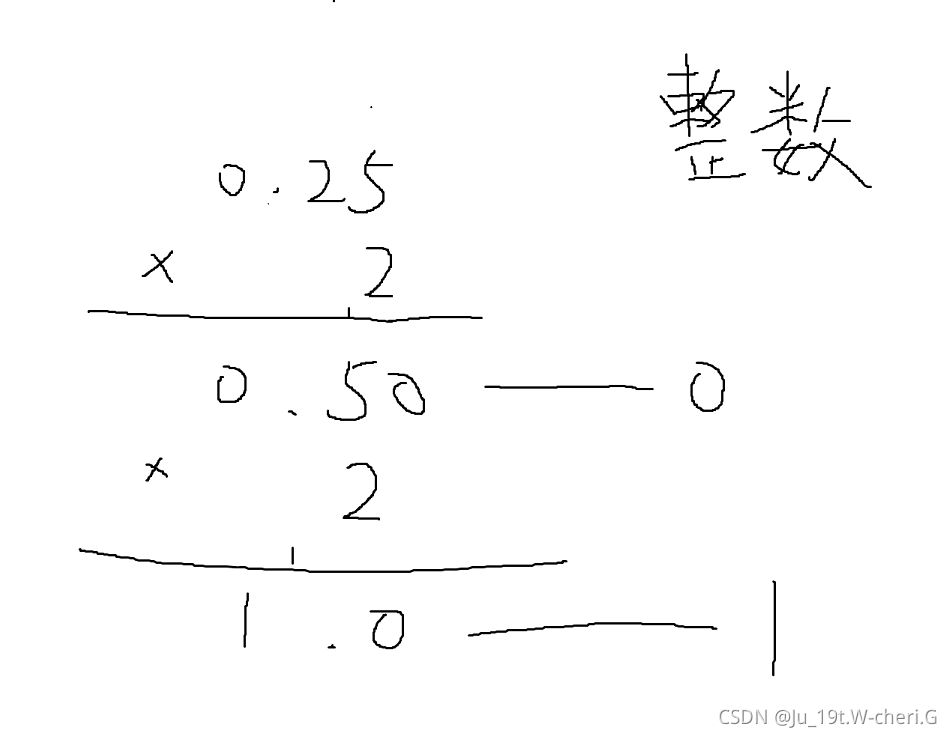 整数
0.25
× 2
0.50 — 0
× 2
1.0 — 1
CSDN @Ju_19t.W-cheri.G